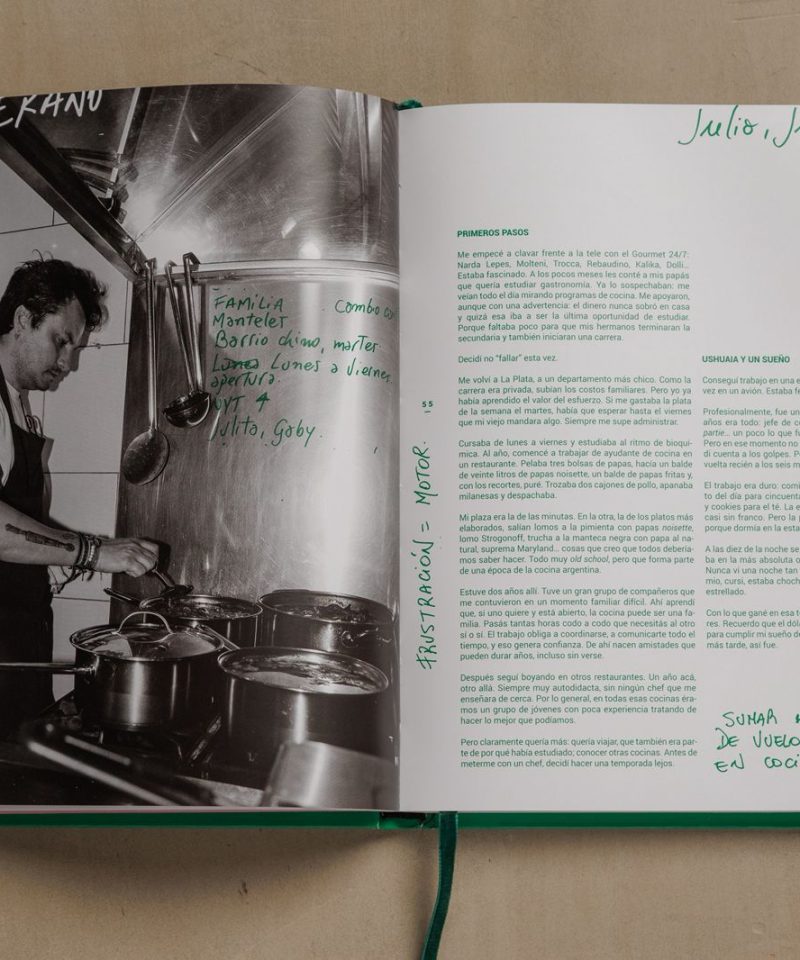 ERANO
FAMILIA
Combio con
Mantelet
Barrio chino, martes
Lunes a viernes
apertura.
NYT 4
Julita, Gaby.
Julio, J
PRIMEROS PASOS
Me empecé a clavar frente a la tele con el Gourmet 24/7:
Narda Lepes, Molteni, Trocca, Rebaudino, Kalika, Dolli...
Estaba fascinado. A los pocos meses les conté a mis papás
que quería estudiar gastronomía. Ya lo sospechaban: me
veían todo el día mirando programas de cocina. Me apoyaron,
aunque con una advertencia: el dinero nunca sobró en casa
y quizá esa iba a ser la última oportunidad de estudiar.
Porque faltaba poco para que mis hermanos terminaran la
secundaria y también iniciaran una carrera.
Decidí no "fallar" esta vez.
Me volví a La Plata, a un departamento más chico. Como la
carrera era privada, subían los costos familiares. Pero yo ya
había aprendido el valor del esfuerzo. Si me gastaba la plata
de la semana el martes, había que esperar hasta el viernes
que mi viejo mandara algo. Siempre me supe administrar.
Cursaba de lunes a viernes y estudiaba al ritmo de bioquí-
mica. Al año, comencé a trabajar de ayudante de cocina en
un restaurante. Pelaba tres bolsas de papas, hacía un balde
de veinte litros de papas noisette, un balde de papas fritas y,
con los recortes, puré. Trozaba dos cajones de pollo, apanaba
milanesas y despachaba.
Mi plaza era la de las minutas. En la otra, la de los platos más
elaborados, salían lomos a la pimienta con papas noisette,
lomo Strogonoff, trucha a la manteca negra con papa al na-
tural, suprema Maryland... cosas que creo que todos debería-
mos saber hacer. Todo muy old school, pero que forma parte
de una época de la cocina argentina.
Estuve dos años allí. Tuve un gran grupo de compañeros que
me contuvieron en un momento familiar difícil. Ahí aprendí
que, si uno quiere y está abierto, la cocina puede ser una fa-
milia. Pasás tantas horas codo a codo que necesitás al otro
sí o sí. El trabajo obliga a coordinarse, a comunicarte todo el
tiempo, y eso genera confianza. De ahí nacen amistades que
pueden durar años, incluso sin verse.
Después seguí boyando en otros restaurantes. Un año acá,
otro allá. Siempre muy autodidacta, sin ningún chef que me
enseñara de cerca. Por lo general, en todas esas cocinas éra-
mos un grupo de jóvenes con poca experiencia tratando de
hacer lo mejor que podíamos.
Pero claramente quería más: quería viajar, que también era par-
te de por qué había estudiado; conocer otras cocinas. Antes de
meterme con un chef, decidí hacer una temporada lejos.
55
FRUSTRACIÓN = MOTOR.
USHUAIA Y UN SUEÑO
Conseguí trabajo en una e
vez en un avión. Estaba fe
Profesionalmente, fue un
años era todo: jefe de co
partie... un poco lo que fu
Pero en ese momento no
di cuenta a los golpes. Po
vuelta recién a los seis m
El trabajo era duro: comi
to del día para cincuenta
y cookies para el té. La e
casi sin franco. Pero la p
porque dormía en la esta
A las diez de la noche se
ba en la más absoluta o
Nunca vi una noche tan
mio, cursi, estaba choch
estrellado.
Con lo que gané en esa t
res. Recuerdo que el dóla
para cumplir mi sueño de
más tarde, así fue.
SUMAR
DE VUELO
EN COCI